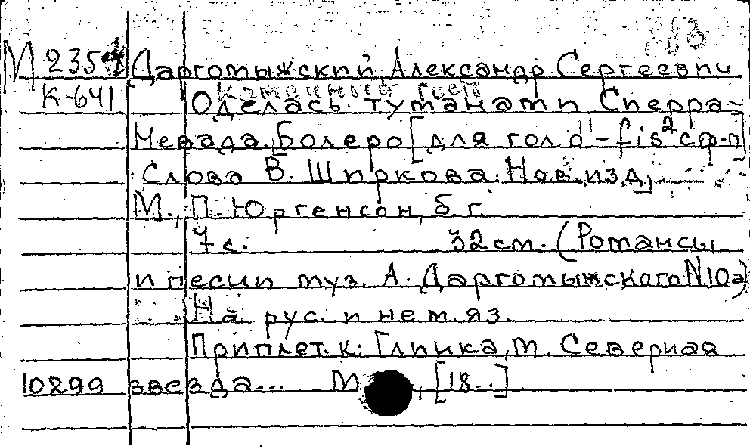 М 2354 Даргомыжский, Александр Сергеевич
К-641 Оделась туманами Сиерра-
Невада. Болеро [для гол. d¹-fis² с ф-п]
Слова В. Ширкова. Нов. изд.
М., П. Юргенсон, б. г.
7 с. 32 см. (Романсы
и песни муз. А. Даргомыжского N10а)
На рус. и нем. яз.
Приплет. к: Глинка, М. Северная
10299 звезда... М., [18..]